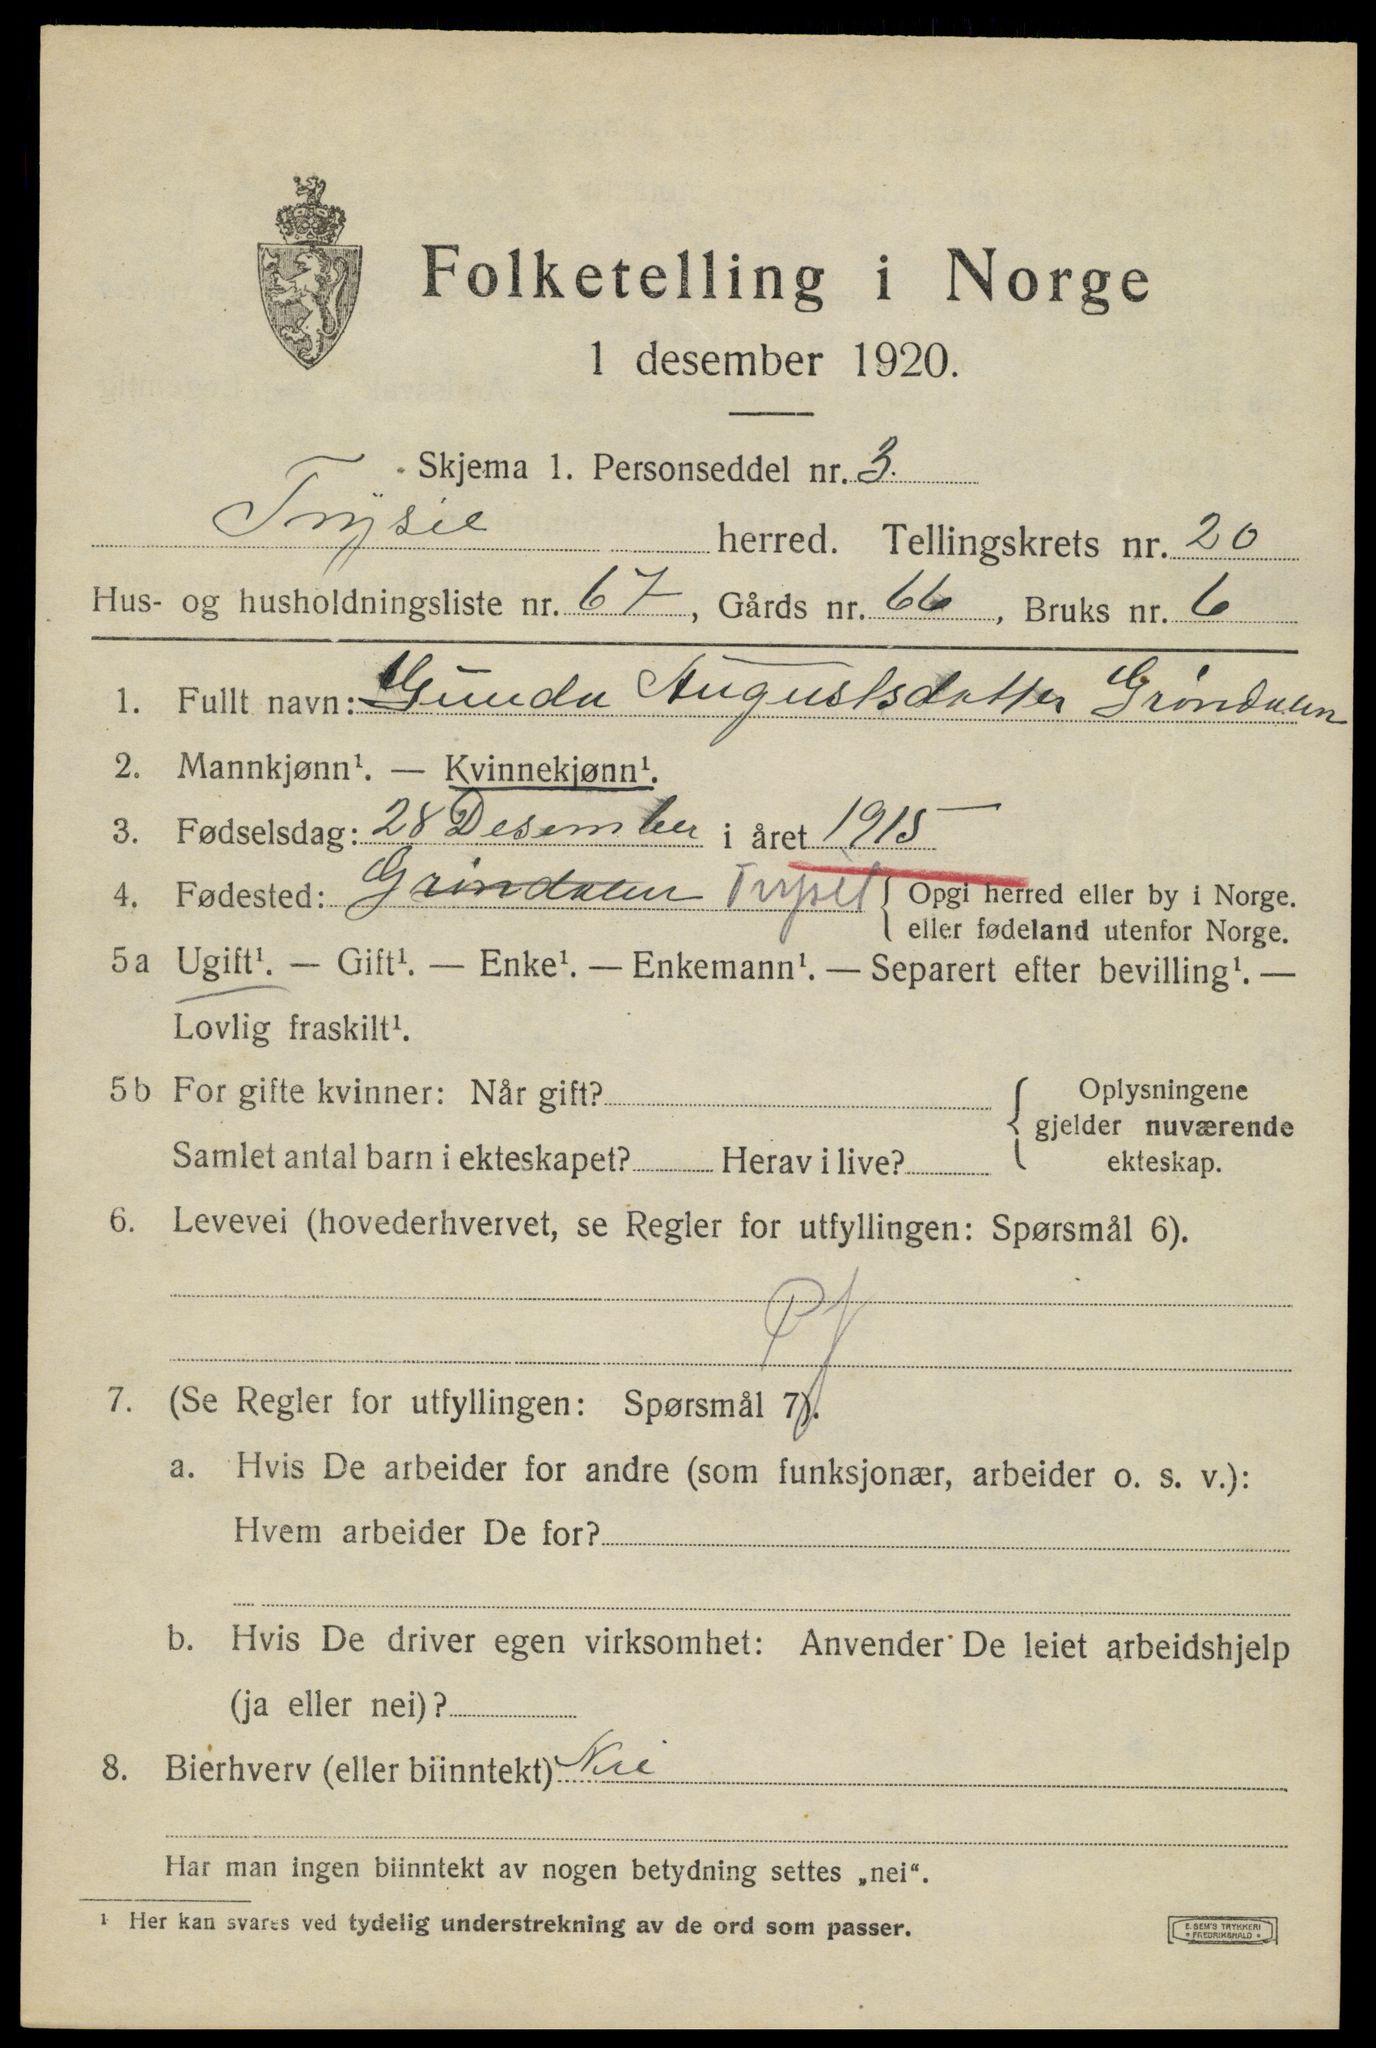 Folketelling i Norge
1 desember 1920.
Skjema 1. Personseddel nr. 3.
Trysil herred. Tellingskrets nr. 20
Hus- og husholdningsliste nr. 67, Gårds nr. 66, Bruks nr. 6
1. Fullt navn: Gunda Augustsdatter Grøndalen
2. Mannkjønn¹. — Kvinnekjønn¹.
3. Fødselsdag: 28 Desember i året 1915
4. Fødested: Grøndalen Trysil { Opgi herred eller by i Norge.
eller fødeland utenfor Norge.
5a Ugift¹. — Gift¹. — Enke¹. — Enkemann¹. — Separert efter bevilling¹. —
Lovlig fraskilt¹.
5b For gifte kvinner: Når gift?
Samlet antal barn i ekteskapet? Herav i live?
Oplysningene
gjelder nuværende
ekteskap.
6. Levevei (hovederhvervet, se Regler for utfyllingen: Spørsmål 6).
Pf
7. (Se Regler for utfyllingen: Spørsmål 7).
a. Hvis De arbeider for andre (som funksjonær, arbeider o. s. v.):
Hvem arbeider De for?
b. Hvis De driver egen virksomhet: Anvender De leiet arbeidshjelp
(ja eller nei)?
8. Bierhverv (eller biinntekt) Nei
Har man ingen biinntekt av nogen betydning settes „nei“.
¹ Her kan svares ved tydelig understrekning av de ord som passer.
E. SEM'S TRYKKERI
FREDRIKSHALD